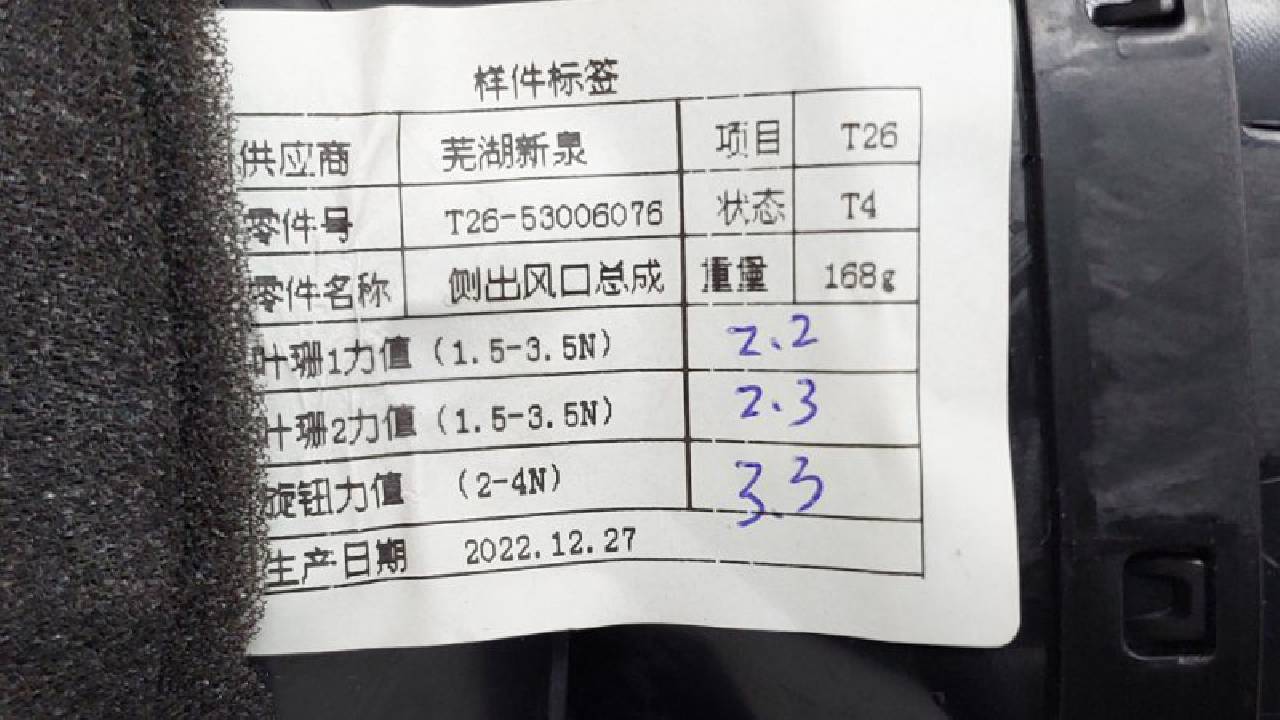 样件标签
供应商 芜湖新泉 项目 T26
零件号 T26-53006076 状态 T4
零件名称 侧出风口总成 重量 168g
叶珊1力值（1.5-3.5N） 2.2
叶珊2力值（1.5-3.5N） 2.3
旋钮力值 （2-4N） 3.3
生产日期 2022.12.27